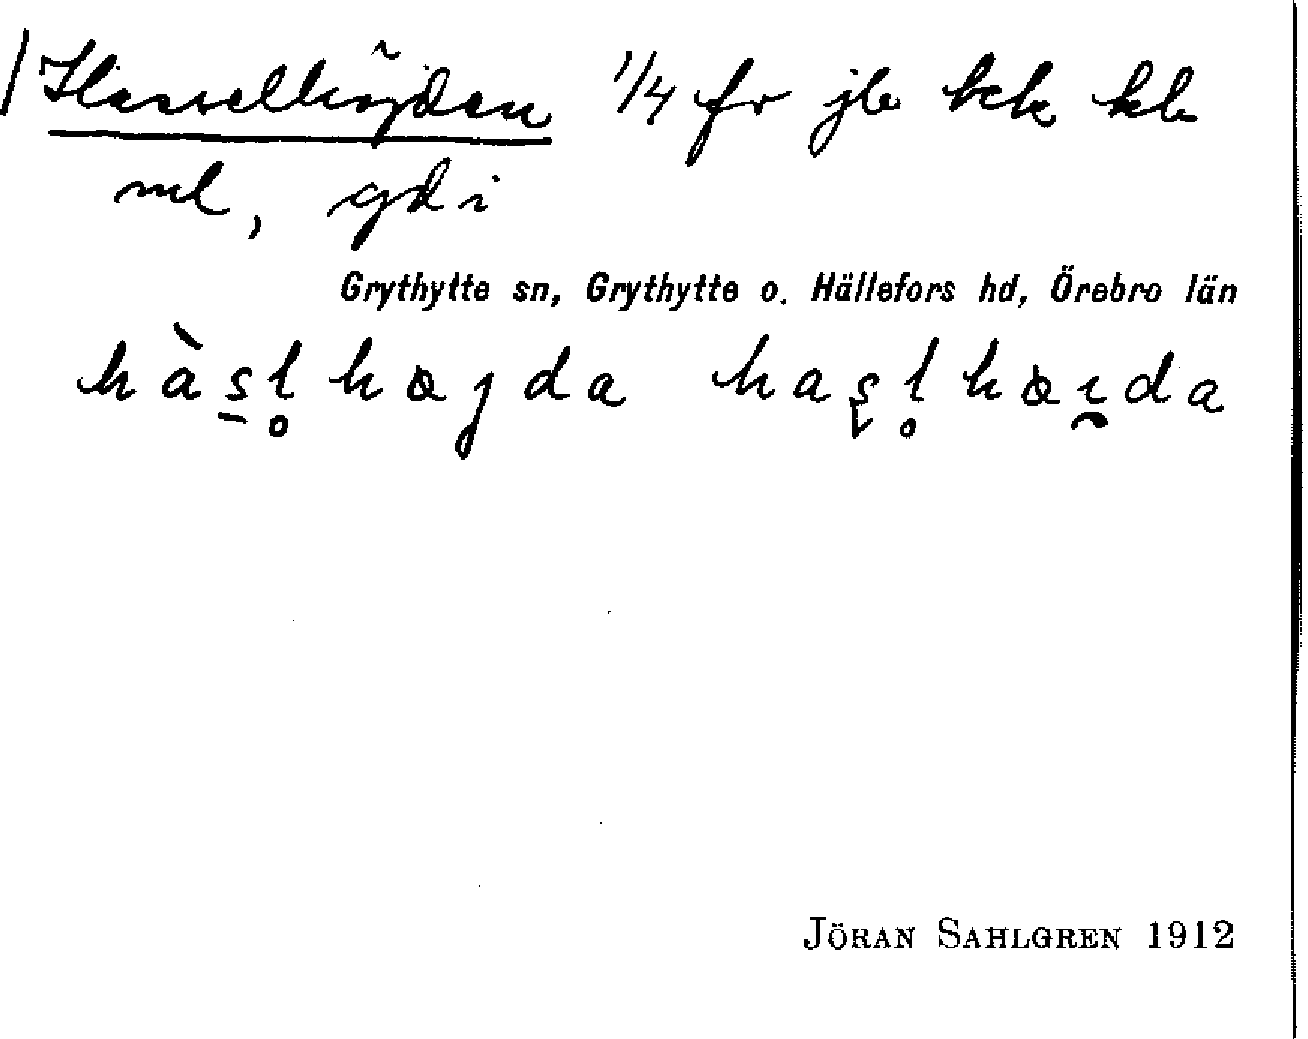 Hasselhöjden 1/4 fr jb bck kb
ml, gd i
Grythytte sn, Grythytte o. Hällefors hd, Örebro län
hàs̠l̥hœjda has̬l̥hœı̯da
JÖRAN SAHLGREN 1912